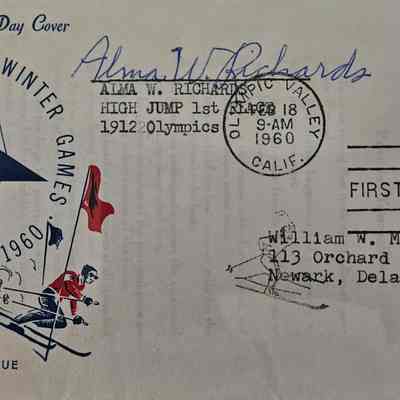 Day Cover
WINTER GAMES.
1960
UE
Alma W. Richards
ALMA W. RICHARDS
HIGH JUMP 1st PLACE
1912 Olympics
OLYMPIC VALLEY
FEB 18
9-AM
1960
CALIF.
FIRST
William W. M
113 Orchard
Newark, Dela